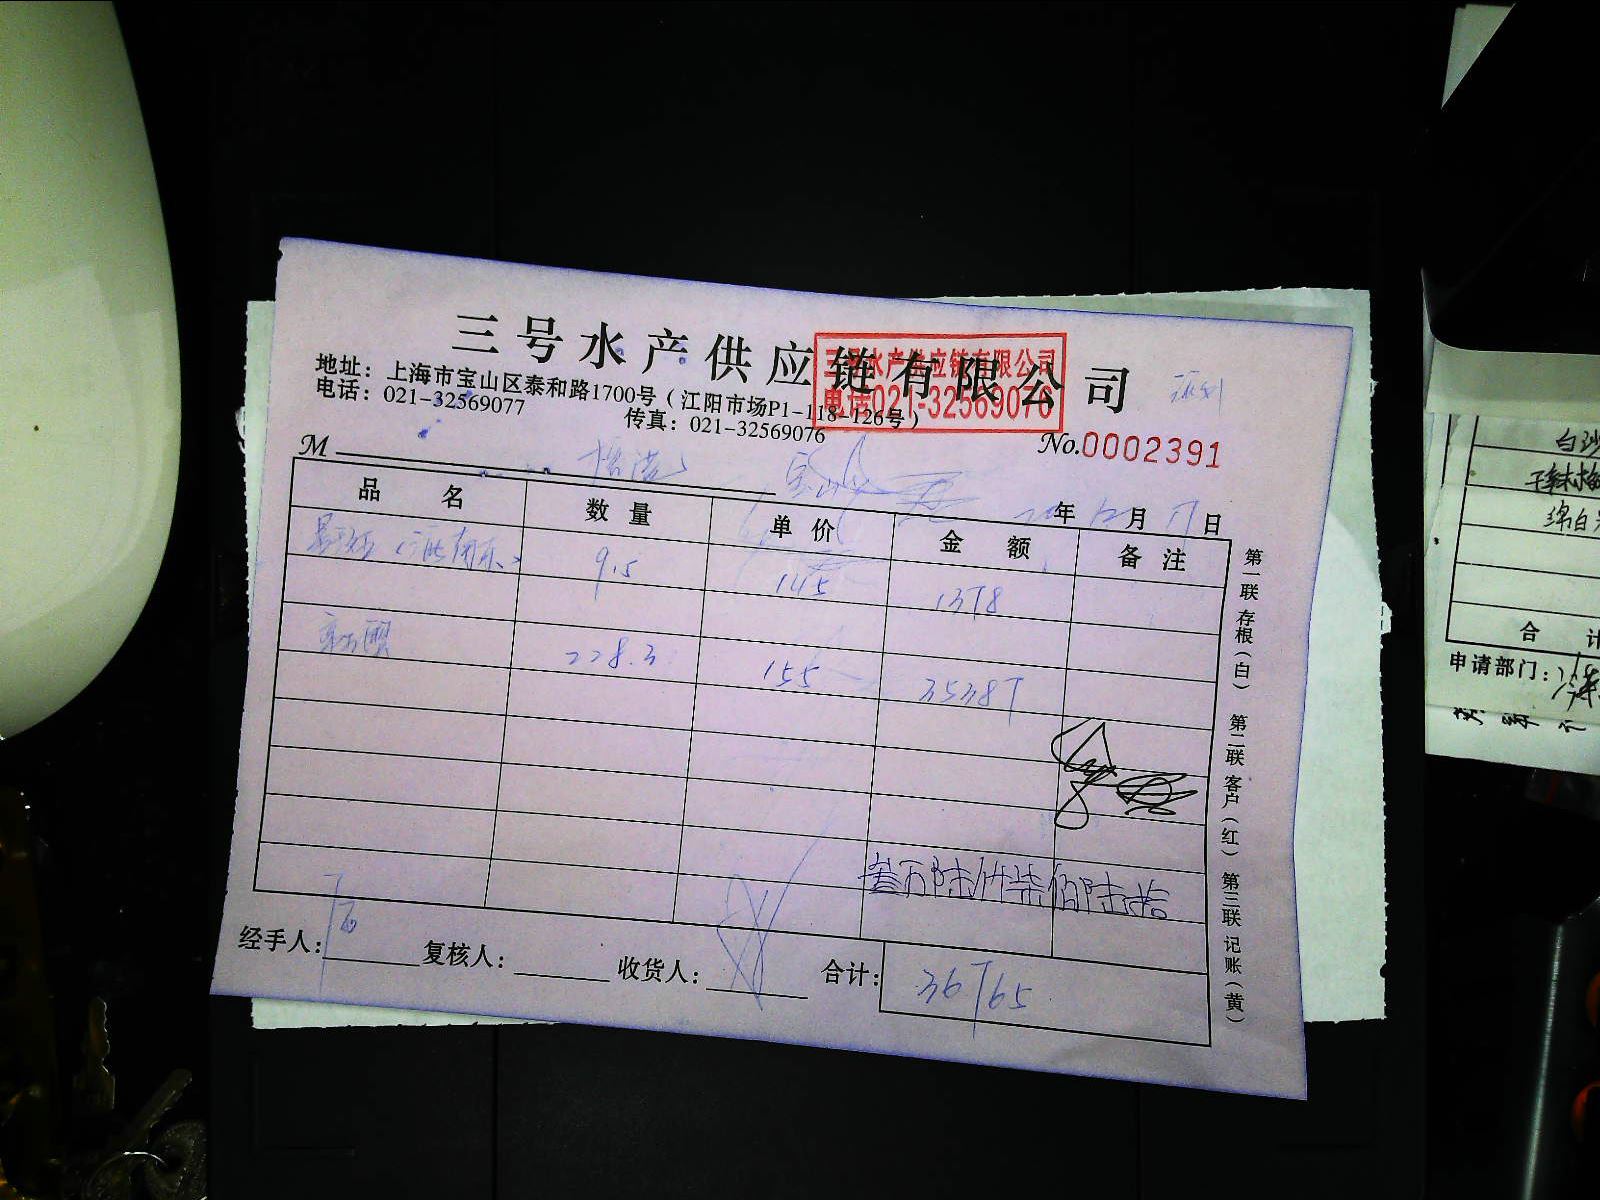 三号水产供应链有限公司
三号水产供应链有限公司
电话021-32569076
地址：上海市宝山区泰和路1700号（江阳市场P1-118-126号）
电话：021-32569077
传真：021-32569076
No.0002391
M
年12月17日
品名 数量 单价 金额 备注
9.5 145 1378
228.3 155 35387
叁万陆仟柒佰陆拾
经手人： 复核人： 收货人： 合计：36765
第一联 存根（白） 第二联 客户（红） 第三联 记账（黄）
白沙
干辣椒
绵白
合 计
申请部门：